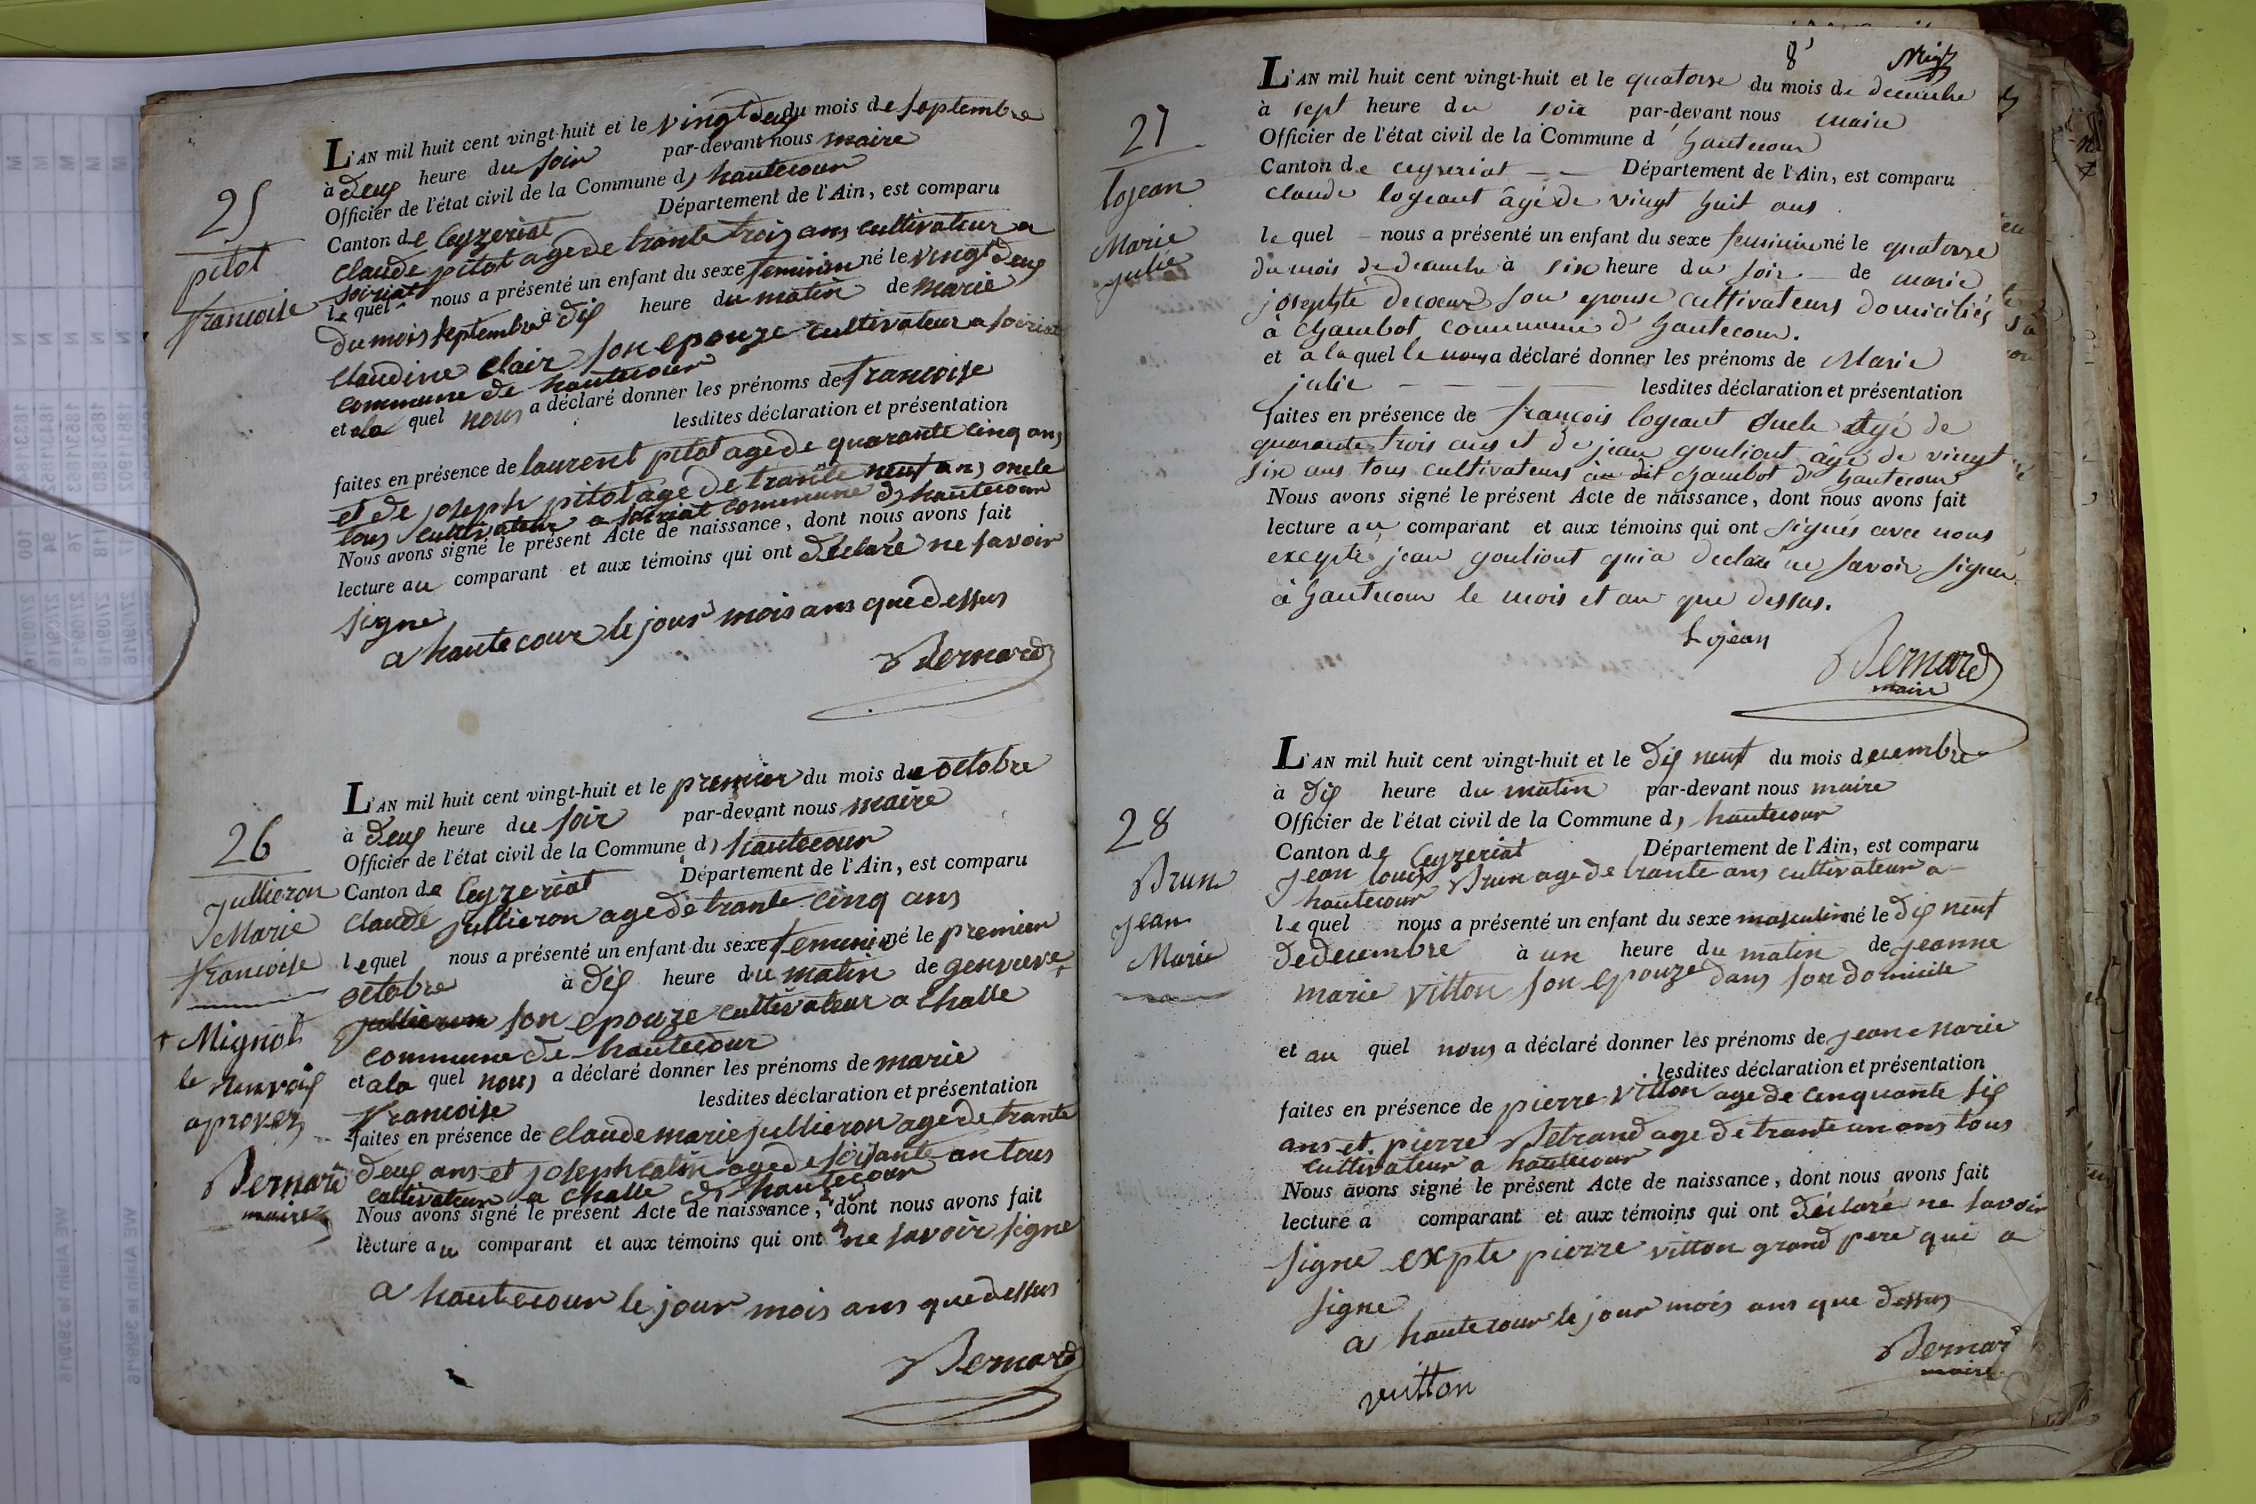 25
pitot
francoise
L'AN mil huit cent vingt-huit et le vingt deux du mois de septembre
à deux heure du soir par-devant nous maire
Officier de l'état civil de la Commune d, hautecour
Canton de Ceyzeriat Département de l'Ain, est comparu
Claude pitot age de trante trois ans cultivateur a
soiriat
lequel nous a présenté un enfant du sexe feminin né le vingt deux
du mois septembre à dix heure du matin de Marie
Claudine Clair son epouze cultivateur a soiriat
commune de hautecour
et a la quel nous a déclaré donner les prénoms de francoise
lesdites déclaration et présentation
faites en présence de laurent pitot age de quarante cinq ans
et de joseph pitot age de trante neuf ans oncle
tous cultivateur a soiriat commune d, hautecour
Nous avons signé le présent Acte de naissance, dont nous avons fait
lecture au comparant et aux témoins qui ont déclaré ne savoir
signe
a hautecour le jour mois ans que dessus
Bernard
26
Jullieron
Marie
francoise
+ Mignot
le renvoix
aprover
Bernard
maire
L'AN mil huit cent vingt-huit et le premier du mois de octobre
à deux heure du soir par-devant nous maire
Officier de l'état civil de la Commune d, hautecour
Canton de Ceyzeriat Département de l'Ain, est comparu
claude jullieron age de trante cinq ans
lequel nous a présenté un enfant du sexe feminin né le premier
octobre à dix heure du matin de genvieve +
jullieron son epouze cultivateur a Challe
commune de hautecour
et a la quel nous a déclaré donner les prénoms de marie
francoise lesdites déclaration et présentation
faites en présence de claude marie jullieron age de trante
deux ans et joseph calin age de soisante an tous
cultivateur a challe d, hautecour
Nous avons signé le présent Acte de naissance, dont nous avons fait
lecture au comparant et aux témoins qui ont ne savoir signe
a hautecour le jour mois ans que dessus
Bernard
8
27
lojean
Marie
julie
L'AN mil huit cent vingt-huit et le quatorse du mois de decembre
à sept heure du soir par-devant nous maire
Officier de l'état civil de la Commune d'hautecour
Canton de ceyseriat Département de l'Ain, est comparu
claude logeant âgé de vingt huit ans
lequel nous a présenté un enfant du sexe feminin né le quatorse
du mois de decembre à six heure du soir de marie
josephte decoeur son epouse cultivateurs domiciliés
à chambot commune d'hautecour.
et a laquel le nous a déclaré donner les prénoms de Marie
julie lesdites déclaration et présentation
faites en présence de françois logeant oncle âgé de
quarante trois ans et de jean gouliout âgé de vingt
six ans tous cultivateurs au dit chambot d'hautecour
Nous avons signé le présent Acte de naissance, dont nous avons fait
lecture au comparant et aux témoins qui ont signés avec nous
excepté jean gouliout qui a declaré ne savoir signer
à hautecour le mois et an que dessus.
Lojean
Bernard
maire
28
Brun
Jean
Marie
L'AN mil huit cent vingt-huit et le dix neuf du mois decembre
à dix heure du matin par-devant nous maire
Officier de l'état civil de la Commune d, hautecour
Canton de Ceyzeriat Département de l'Ain, est comparu
Jean louis Brun age de trante ans cultivateur a
hautecour
lequel nous a présenté un enfant du sexe masculin né le dix neuf
de decembre à un heure du matin de jeanne
marie vitton son epouze dans son domicile
et au quel nous a déclaré donner les prénoms de jean Marie
lesdites déclaration et présentation
faites en présence de pierre vitton age de cinquante six
ans et pierre Betrand age de trante un ans tous
cultivateur a hautecour
Nous avons signé le présent Acte de naissance, dont nous avons fait
lecture a comparant et aux témoins qui ont déclaré ne savoir
signe expte pierre vitton grand pere qui a
signe
a hautecour le jour mois ans que dessus
Bernard
maire
vuitton